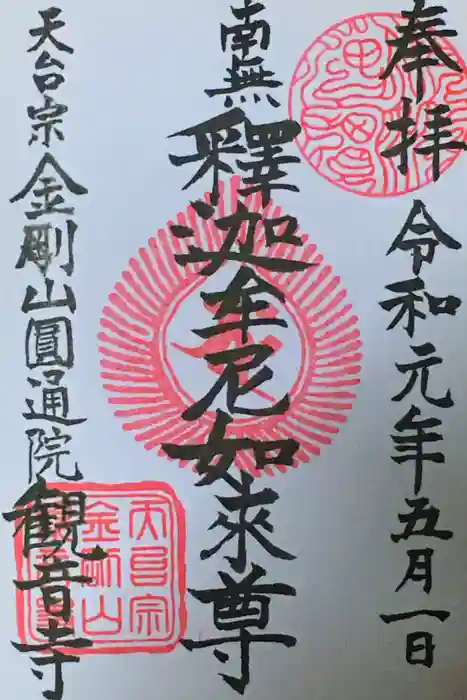 奉拝 令和元年五月一日
南無釋迦牟尼如来尊
天台宗金剛山圓通院観音寺
天台宗
金剛山